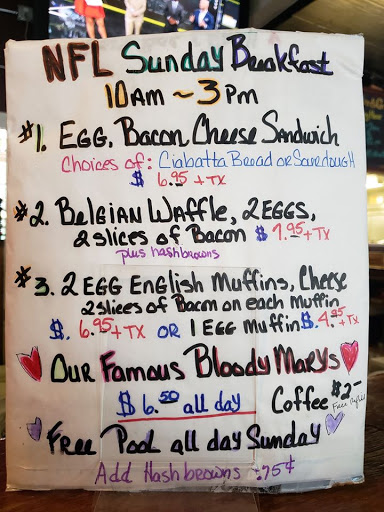 NFL Sunday Breakfast
10AM ~ 3PM
#1. EGG, Bacon Cheese Sandwich
Choices of: Ciabatta Bread or Sourdough
$ 6.95 + TX
#2. Belgian Waffle, 2 EGGS,
2 slices of Bacon $ 7.95 + TX
plus hashbrowns
#3. 2 EGG English Muffins, Cheese
2 slices of Bacon on each muffin
$. 6.95 + TX OR 1 EGG Muffin $. 4.95 + TX
Our Famous Bloody Marys
$ 6.50 all day
Coffee $2-
Free Refills
Free Pool all day Sunday
Add Hashbrowns .75¢